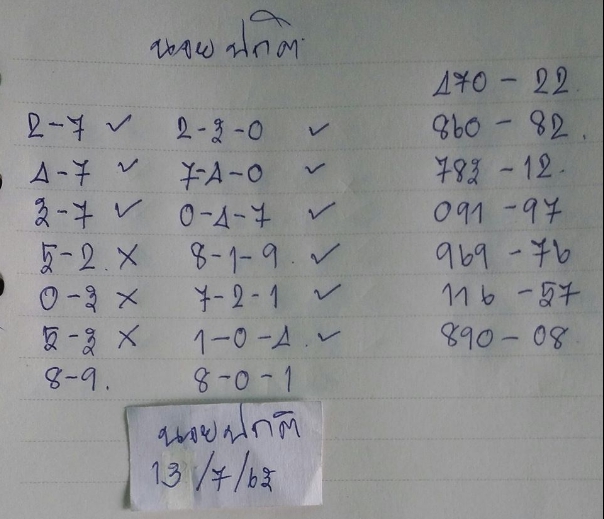 นอย ปกติ
470 - 22
2-7 ✓ 2-3-0 ✓ 860 - 82.
4-7 ✓ 7-4-0 ✓ 783 - 12.
3-7 ✓ 0-4-7 ✓ 091 - 97
5-2. X 8-1-9. ✓ 969 - 76
0-3 X 7-2-1 ✓ 116 - 57
5-3 X 1-0-4. ✓ 890 - 08.
8-9. 8-0-1
นอย ปกติ
13/7/63